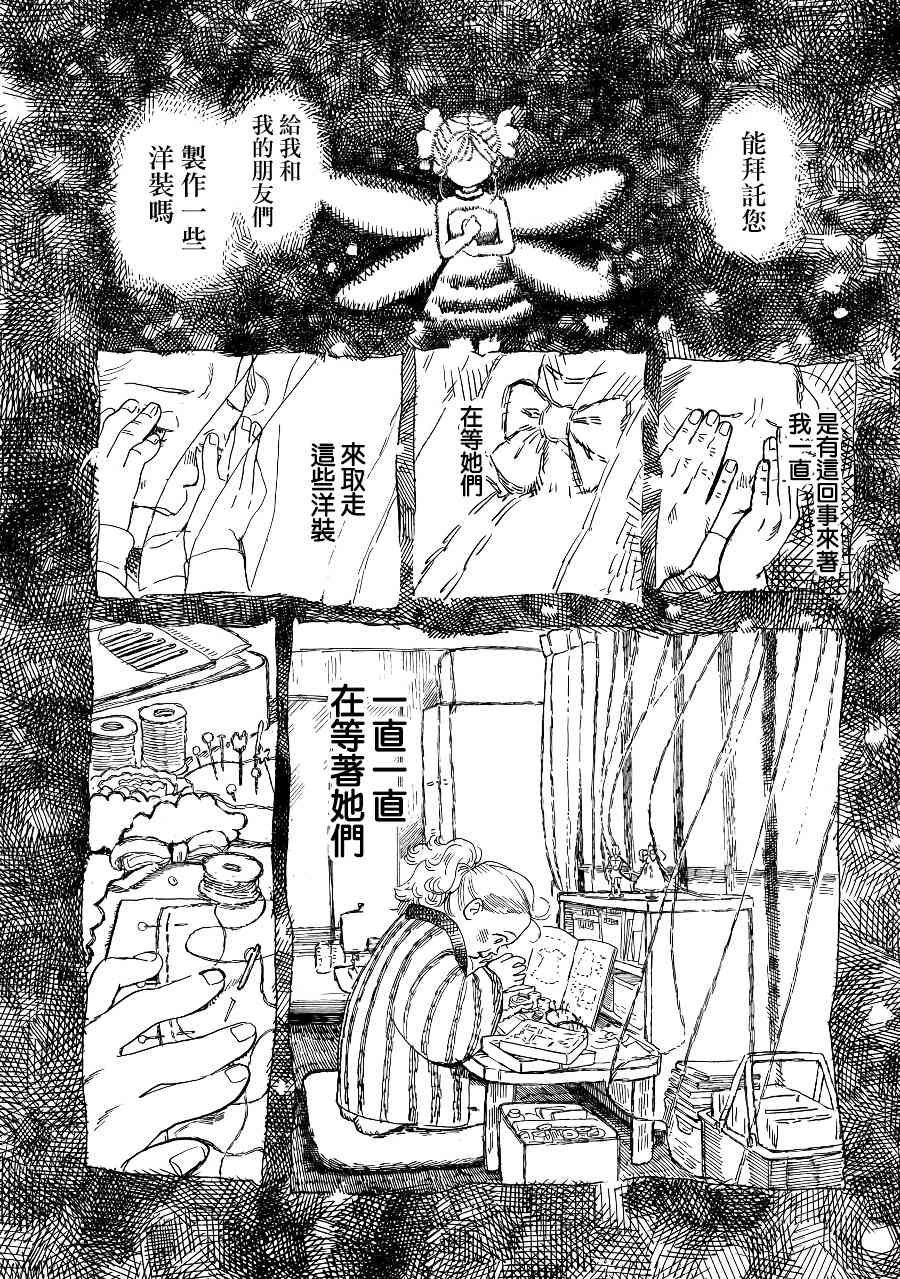 能拜託您
給我和
我的朋友們
製作一些
洋裝嗎
是有這回事來著
我一直
在等她們
來取走
這些洋裝
一直一直
在等著她們